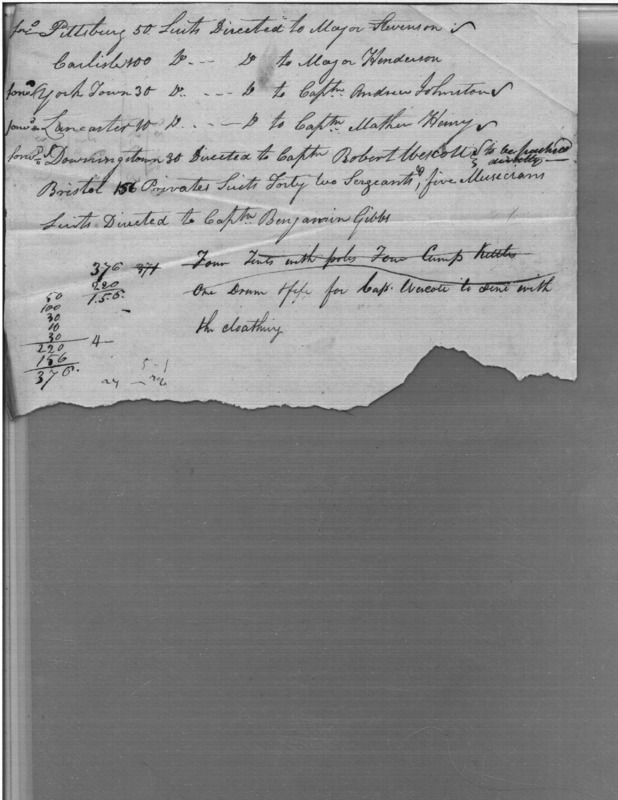 Pittsburg 50 Suits Directed to Major Stevenson
Carlisle 100 Do --- Do to Major Henderson
York Town 30 Do --- Do to Captn Andrew Johnston
Lancaster 10 Do --- Do to Captn Mathew Henry
Downingstown 30 Directed to Captn Robert Wescott to be
directly
Bristol 156 Privates Suits Forty two Sergeants Do, five Musicians
Suits Directed to Captn Benjamin Gibbs
376 371 Four Tents with poles Four Camp Kettles
220
156. One Drum & fife for Cap. Wescote to send with
the cloathing
50
100
30
10
30 4-
220
156
376.